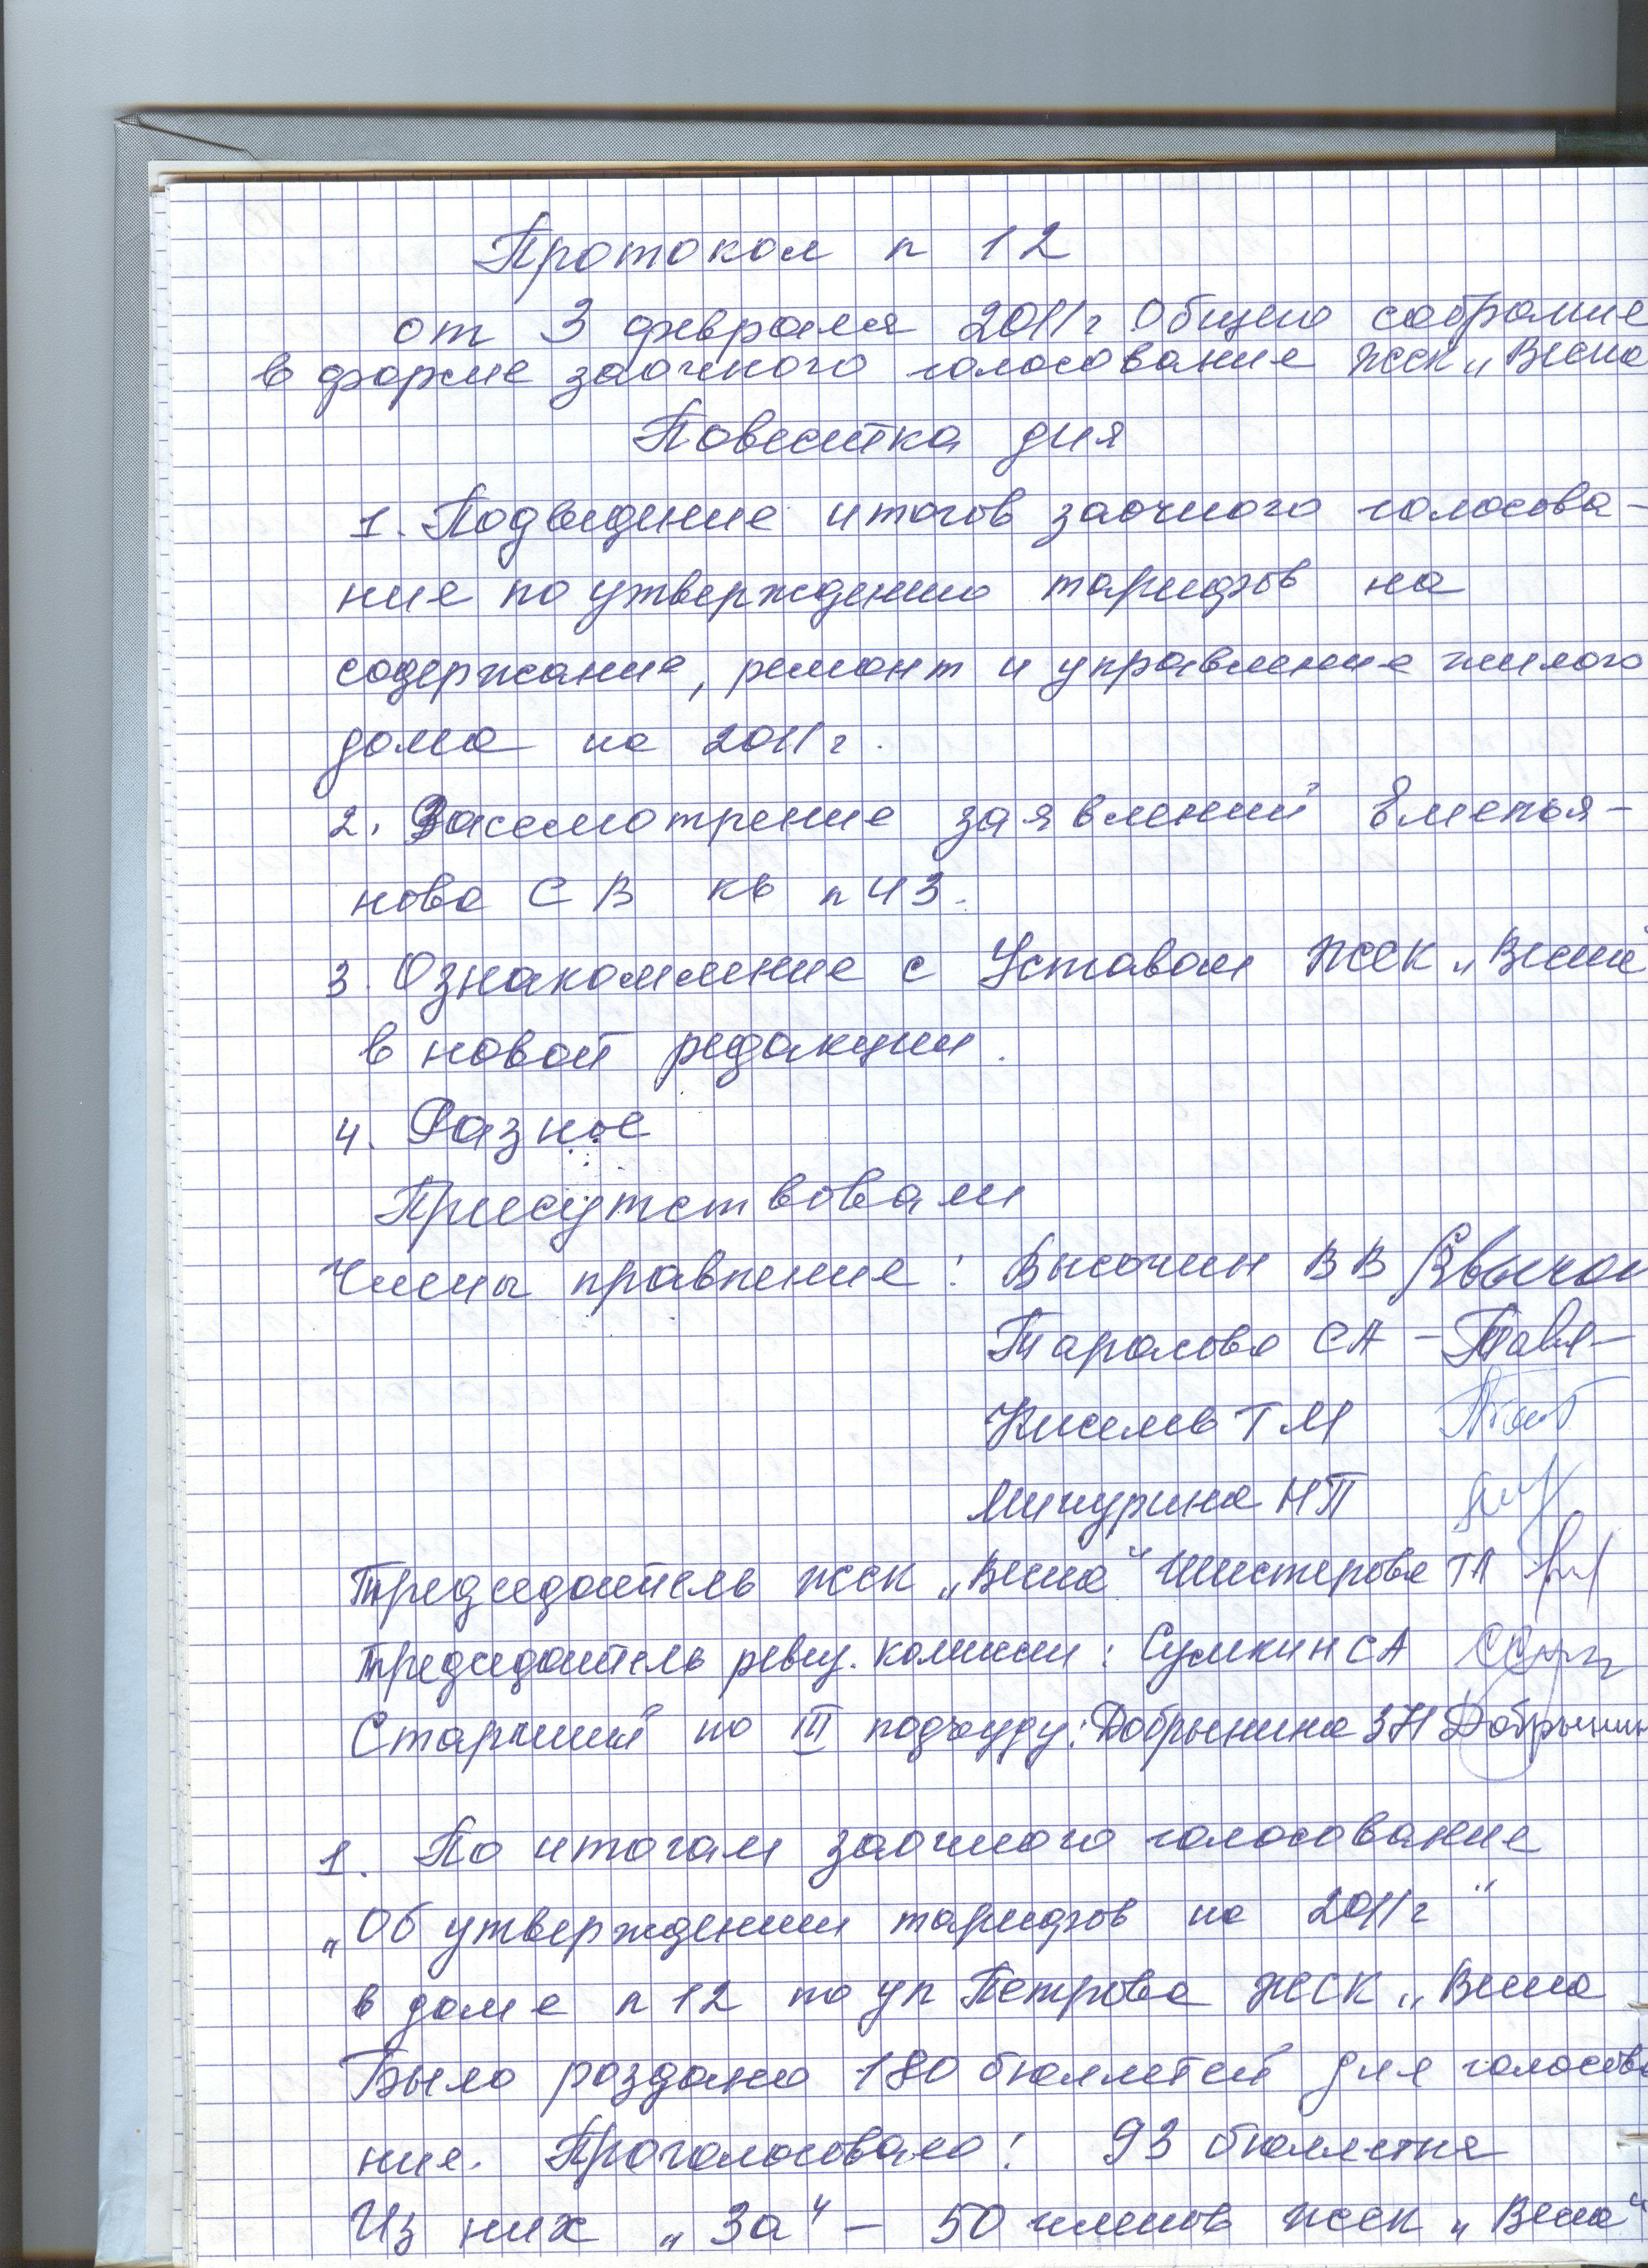 Протокол n 12
от 3 февраля 2011г Общего собрание
в форме заочного голосование ЖСК „Весна
Повестка дня
1. Подведение итогов заочного голосова-
ние по утверждению тарифов на
содержание, ремонт и управление жилого
дома на 2011г.
2. Рассмотрение заявлений Емелья-
нова С В кв n 43.
3. Ознакомление с Уставом ЖСК „Весна"
в новой редакции.
4. Разное
Присутствовали
Члены правление: Высочин ВВ
Тарасова СА –
Киселев ТМ
Мичурина НП
Председатель ЖСК „Весна" Шистерова ТЛ
Председатель ревиз. комиссии: Сумкин СА
Старший по III подъезду: Добрынина ЗН Добрынин
1. По итогам заочного голосование
„Об утверждении тарифов на 2011г"
в доме n 12 по ул Петрова ЖСК „Весна
Было роздано 180 бюллетей для голосова
ние. Проголосовало: 93 бюллетня
Из них „За" – 50 членов ЖСК „Весна"